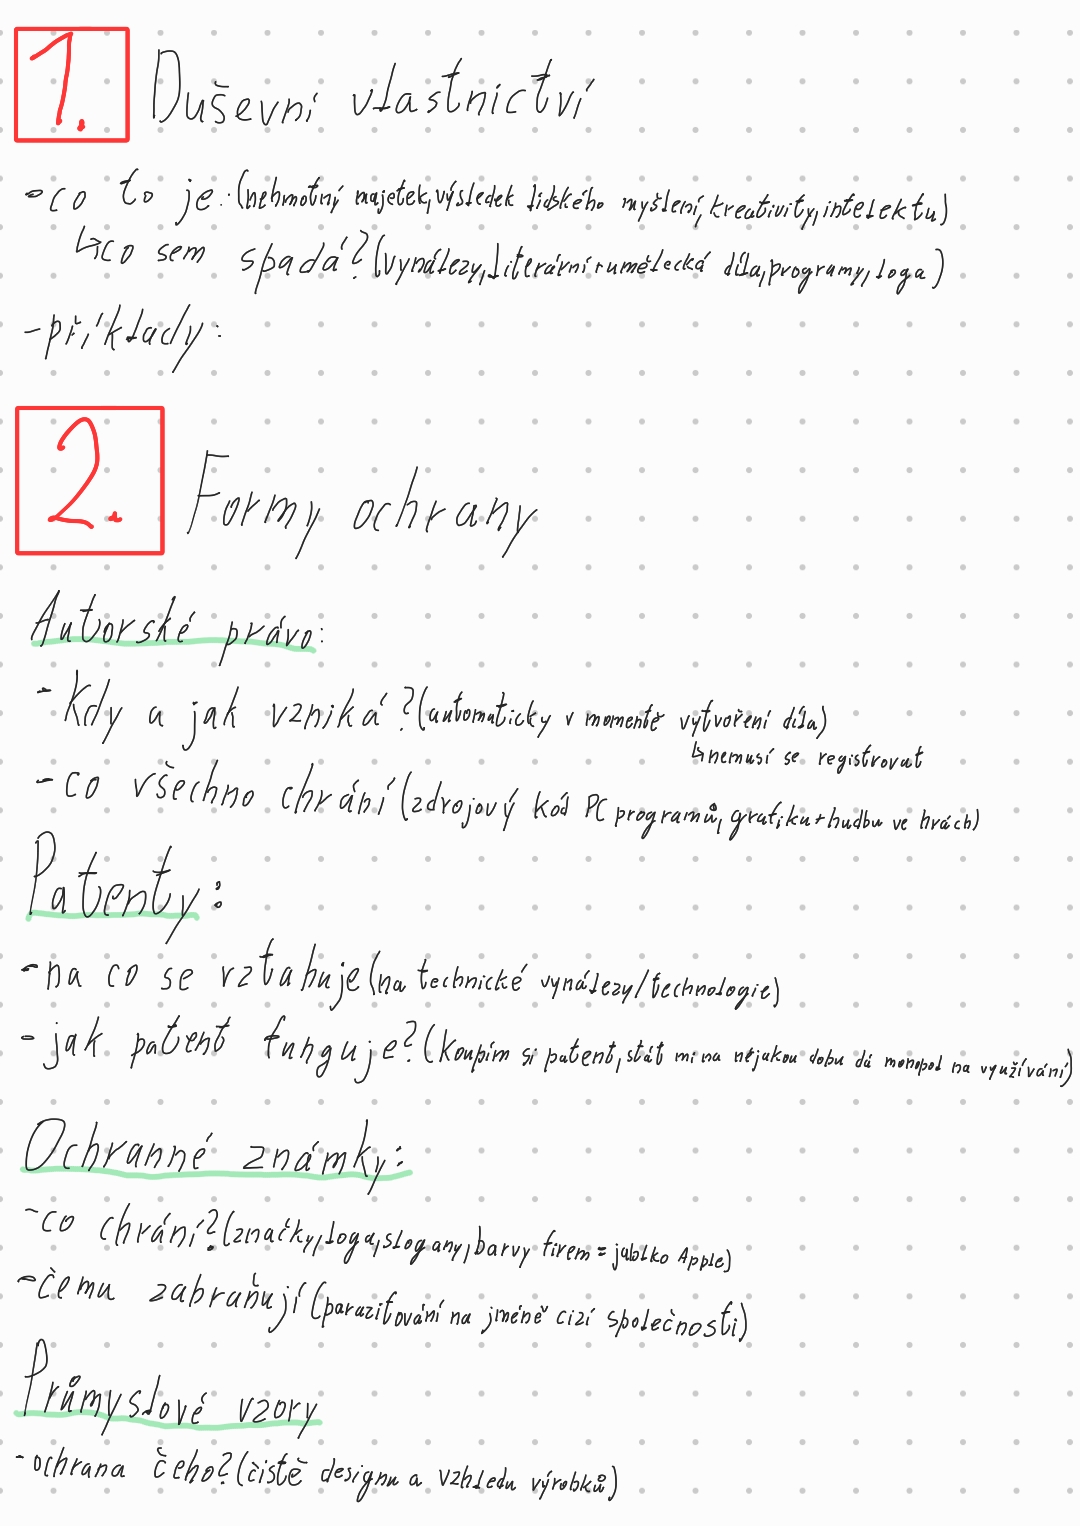 1. Duševní vlastnictví
- co to je: (nehmotný majetek, výsledek lidského myšlení, kreativity, intelektu)
↳ co sem spadá? (vynálezy, literární + umělecká díla, programy, loga)
- příklady:
2. Formy ochrany
Autorské právo:
- Kdy a jak vzniká? (automaticky v momentě vytvoření díla)
↳ nemusí se registrovat
- co všechno chrání (zdrojový kód PC programů, grafiku + hudbu ve hrách)
Patenty:
- na co se vztahuje (na technické vynálezy/technologie)
- jak patent funguje? (koupím si patent, stát mi na nějakou dobu dá monopol na využívání)
Ochranné známky:
- co chrání? (značky, loga, slogany, barvy firem = jablko Apple)
- čemu zabraňují (parazitování na jméně cizí společnosti)
Průmyslové vzory
- ochrana čeho? (čistě designu a vzhledu výrobků)